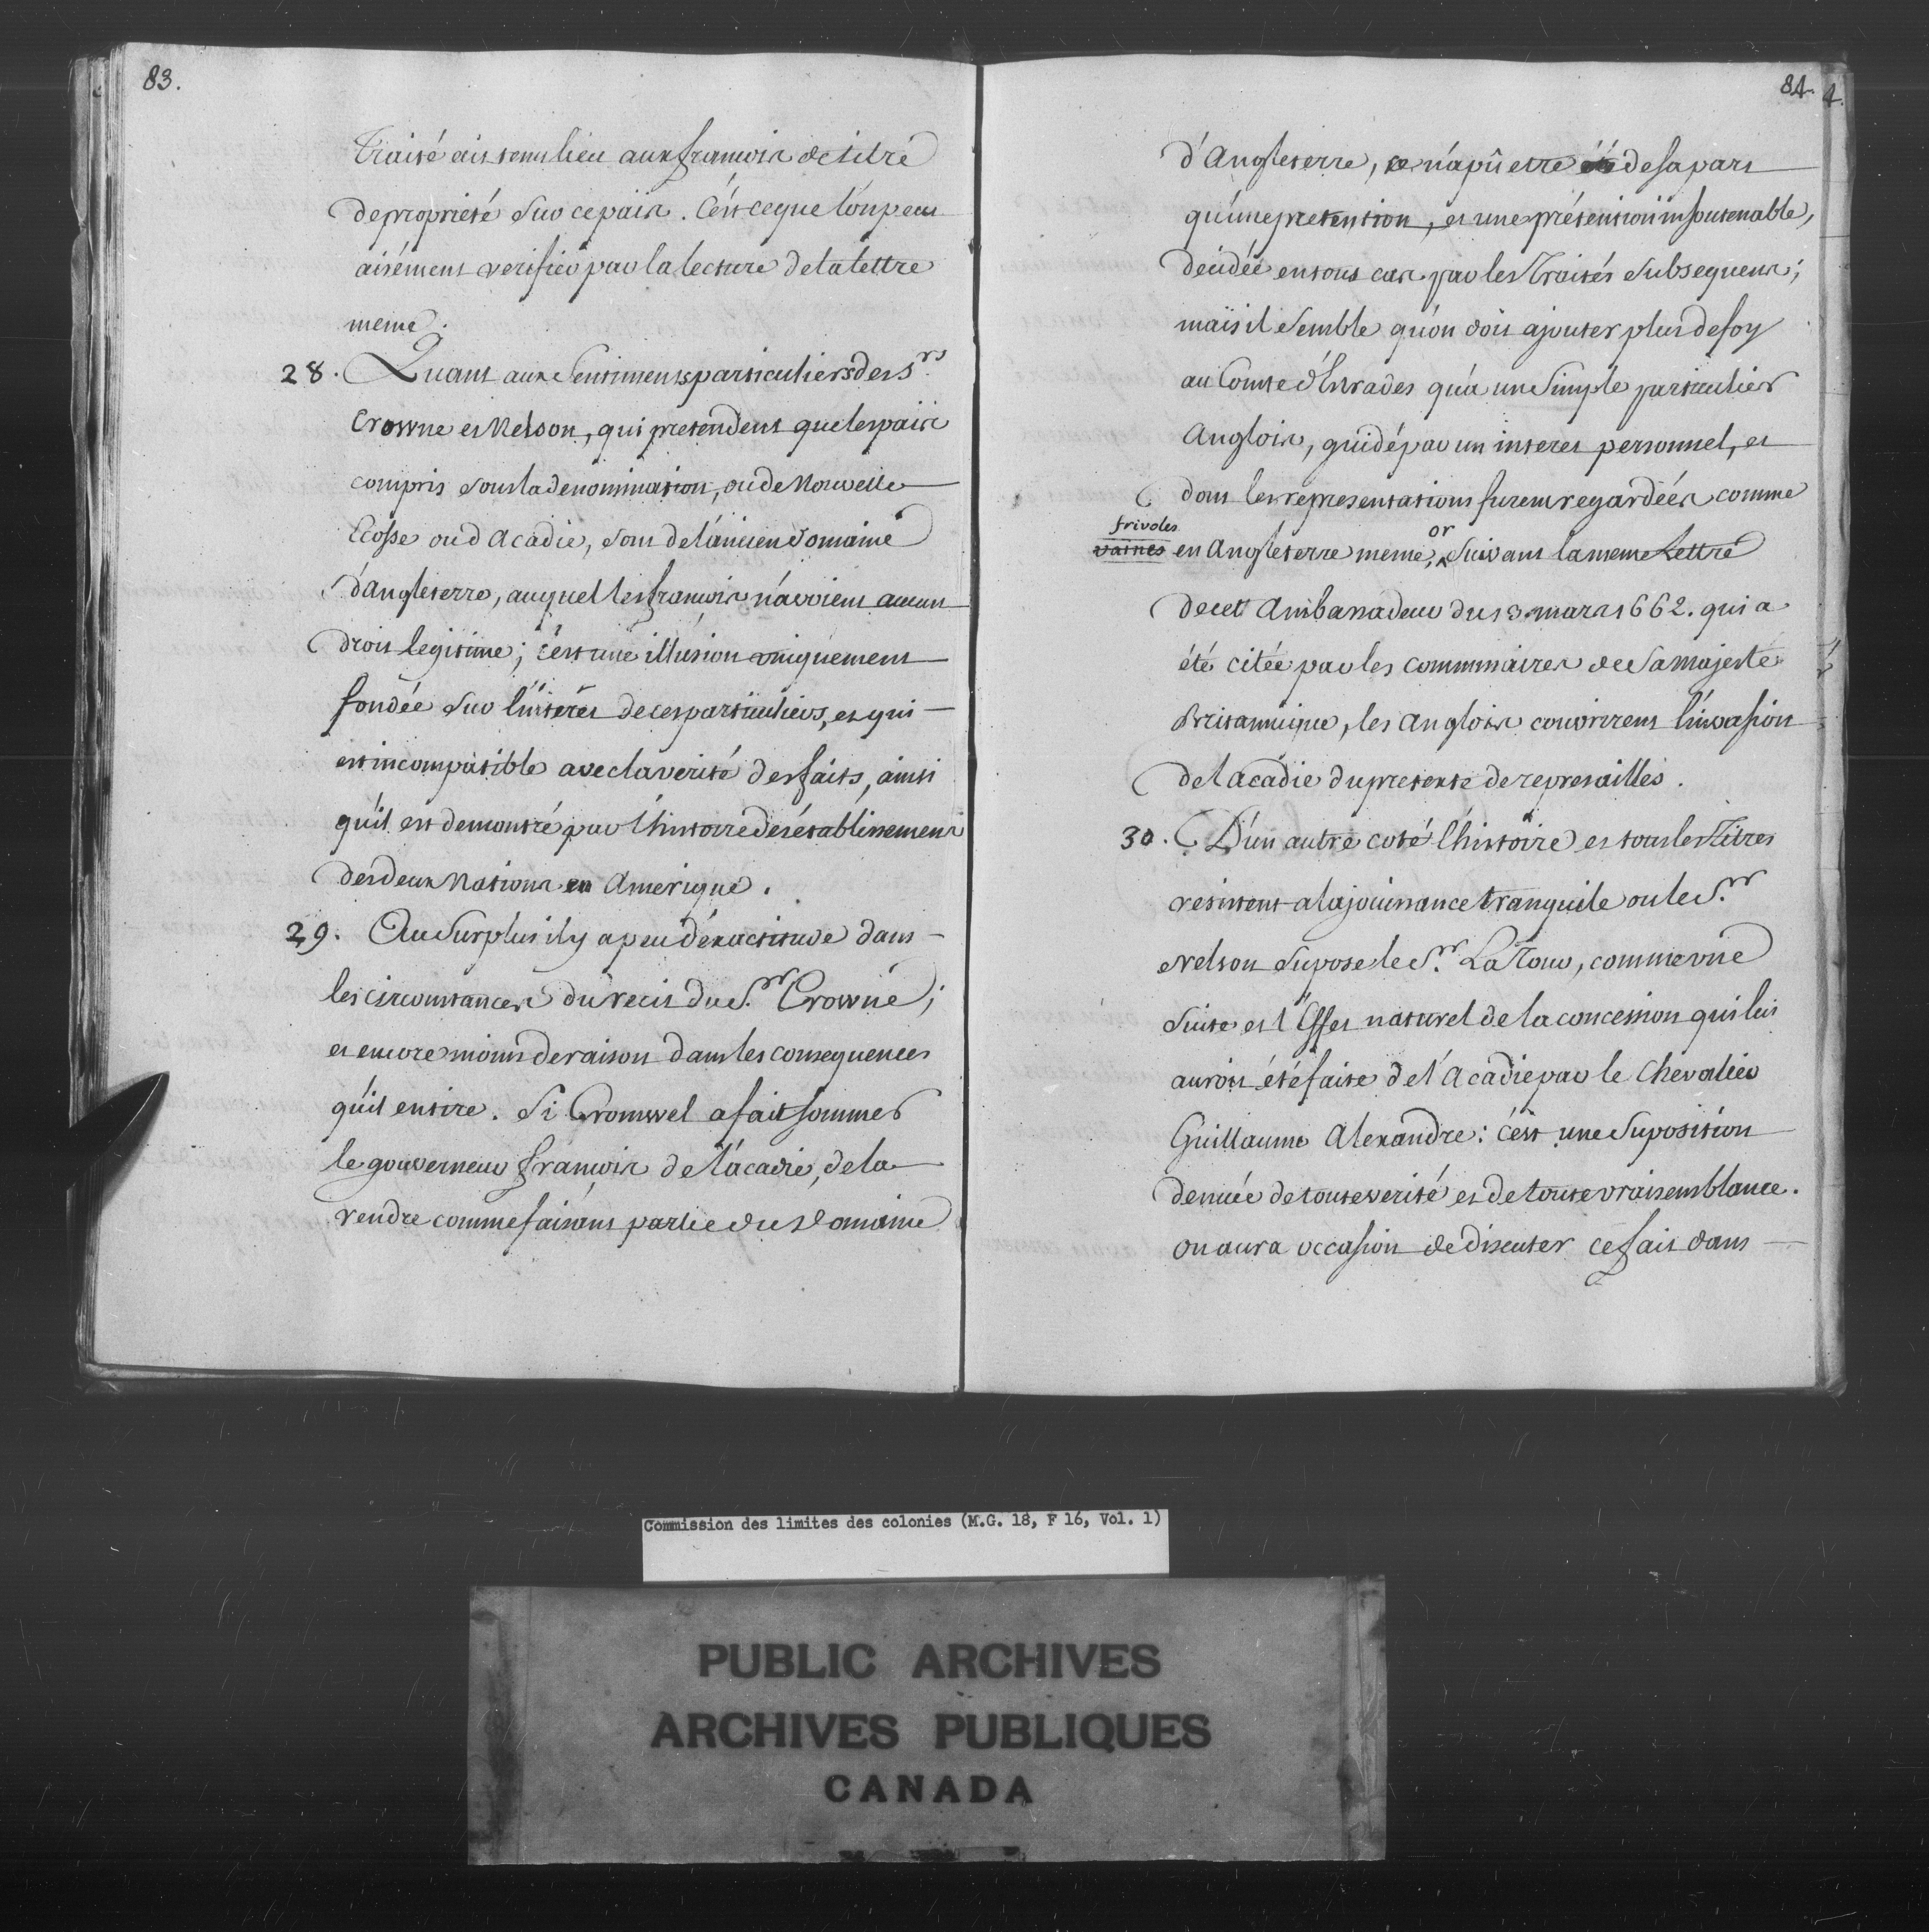 83.
Traité ait tenu lieu aux françois de titre
de proprieté sur ce païs. C'est ce que l'on peut
aisément verifier par la lecture de la lettre
meme.
28. Quant aux Sentiments particuliers des S.rs
Crowne et Nelson, qui pretendent que les païs
compris sous la denomination, ou de Nouvelle
Ecosse ou d'Acadie, sont de l'ancien domaine
d'Angleterre, auquel les françois n'avoient aucun
droit legitime; c'est une illusion uniquement
fondée sur l'interêt de ces particuliers, et qui
est incompatible avec la verité des faits, ainsi
qu'il est demontré par l'histoire des établissemens
des deux Nations en Amerique.
29. Au Surplus il y a peu d'exactitude dans
les circonstances du recit du S.r Crowne;
et encore moins de raison dans les consequences
qu'il en tire. Si Cromwel a fait sommer
le gouverneur françois de l'acadie, de la
rendre comme faisant partie du domaine
84.
4.
d'Angleterre, ce n'a pû etre de sa part
qu'une pretention, et une prétention insoutenable,
decidée en tout cas par les Traités subsequens;
mais il semble qu'on doit ajouter plus de foy
au Comte d'Estrades qu'à un simple particulier
Anglois, guidé par un interet personnel, et
dont les representations furent regardées comme
frivoles or
vaines en Angleterre meme, Suivant la meme Lettre
de cet Ambassadeur du 13. mars 1662. qui a
été citée par les commissaires de Sa Majesté
Britannique, les Anglois couvrirent l'invasion
de l'acadie du pretexte de represailles.
30. D'un autre coté l'histoire et tous les Titres
resistent a la jouissance tranquile ou le S.r
Nelson supose le S.r La Tour, comme une
suite et l'Effet naturel de la concession qui lui
auroit été faite de l'Acadie par le Chevalier
Guillaume Alexandre: c'est une suposition
denuée de toute verité et de toute vraisemblance.
on aura occasion de discuter ce fait dans
Commission des limites des colonies (M.G. 18, F 16, Vol. 1)
PUBLIC ARCHIVES
ARCHIVES PUBLIQUES
CANADA